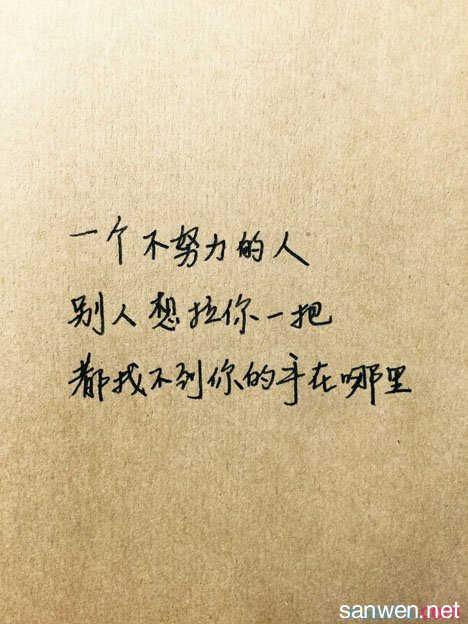 一个不努力的人
别人想拉你一把
都找不到你的手在哪里
sanwen.net